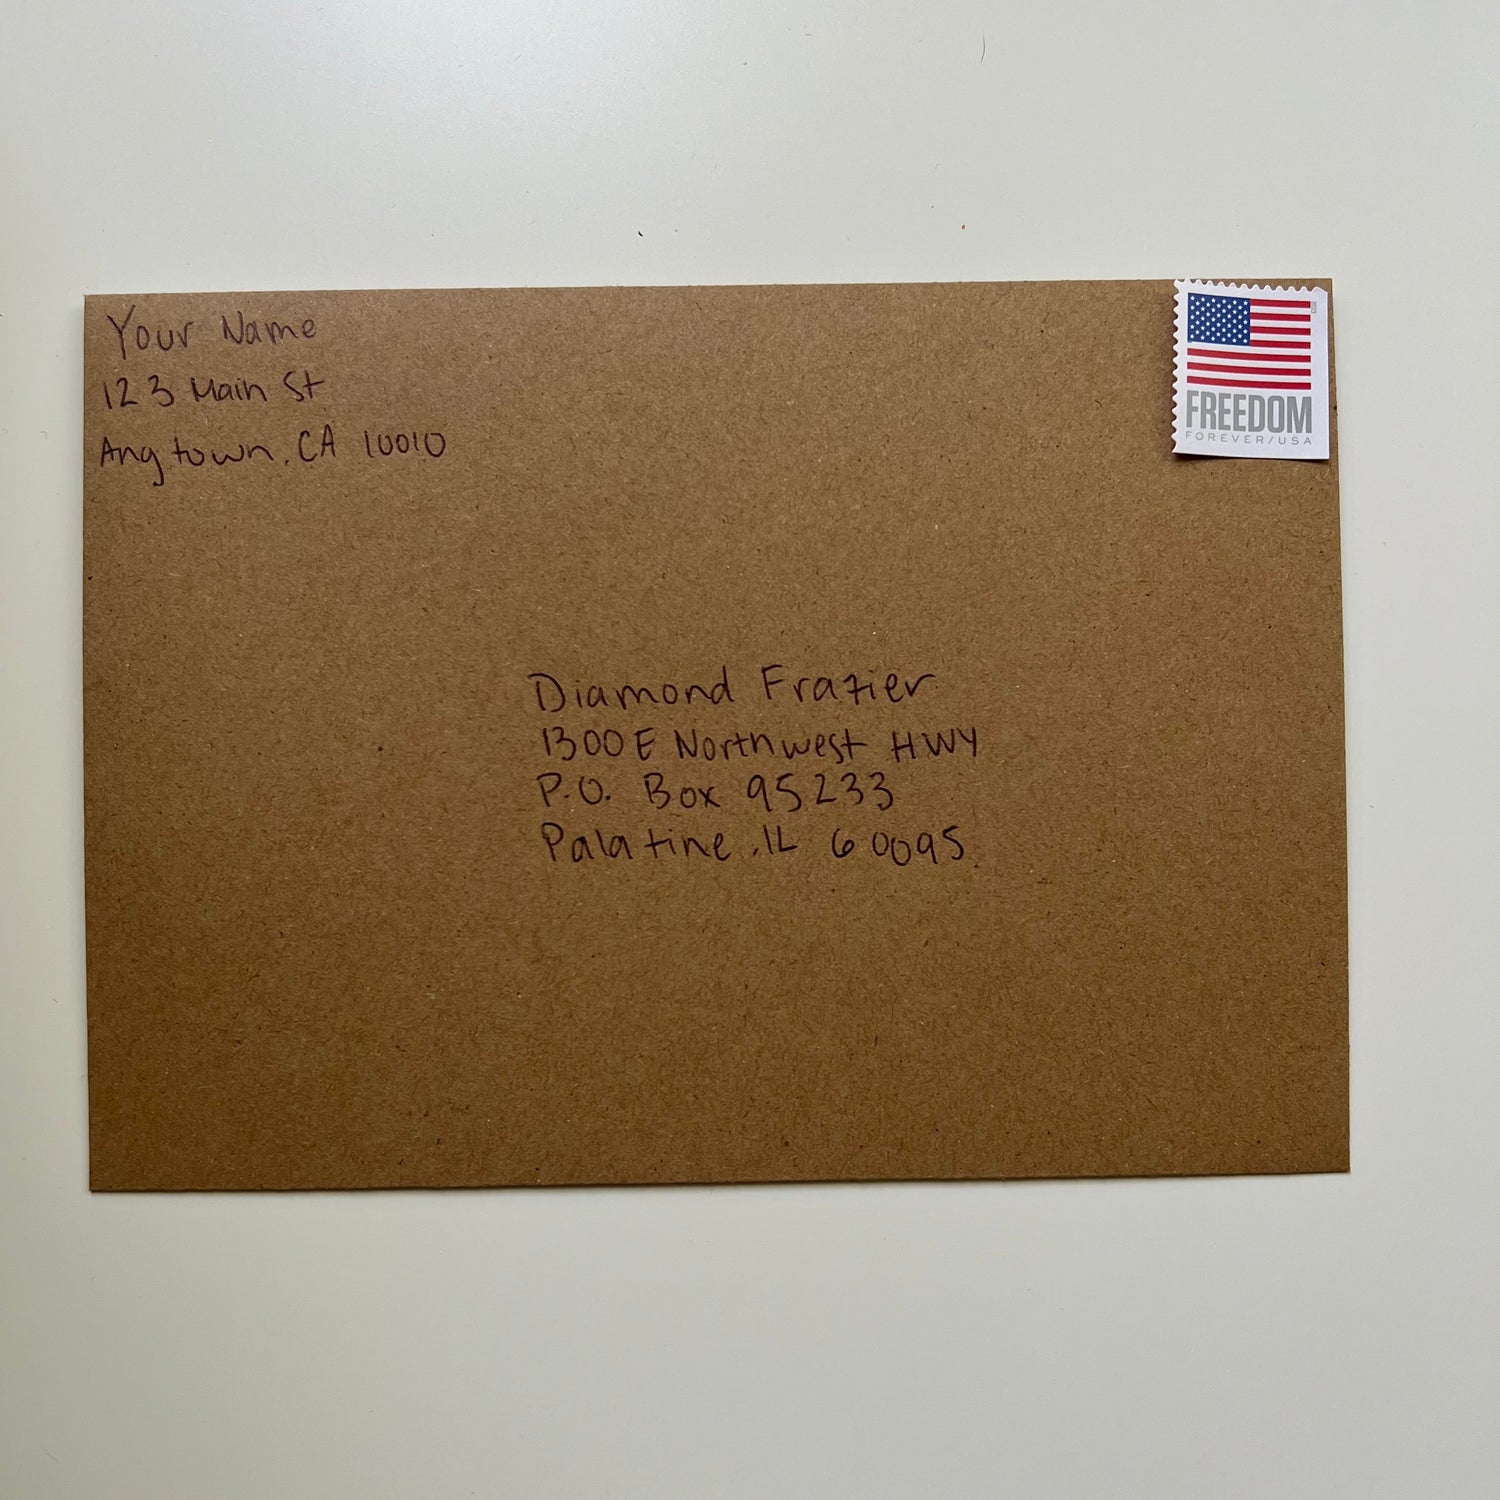 Your Name
123 Main St
Anytown, CA 10010
FREEDOM
FOREVER/USA
Diamond Frazier
1300 E Northwest HWY
P.O. Box 95233
Palatine, IL 60095